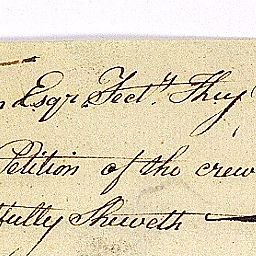 Esqr.
Petition of the crew
fully Sheweth